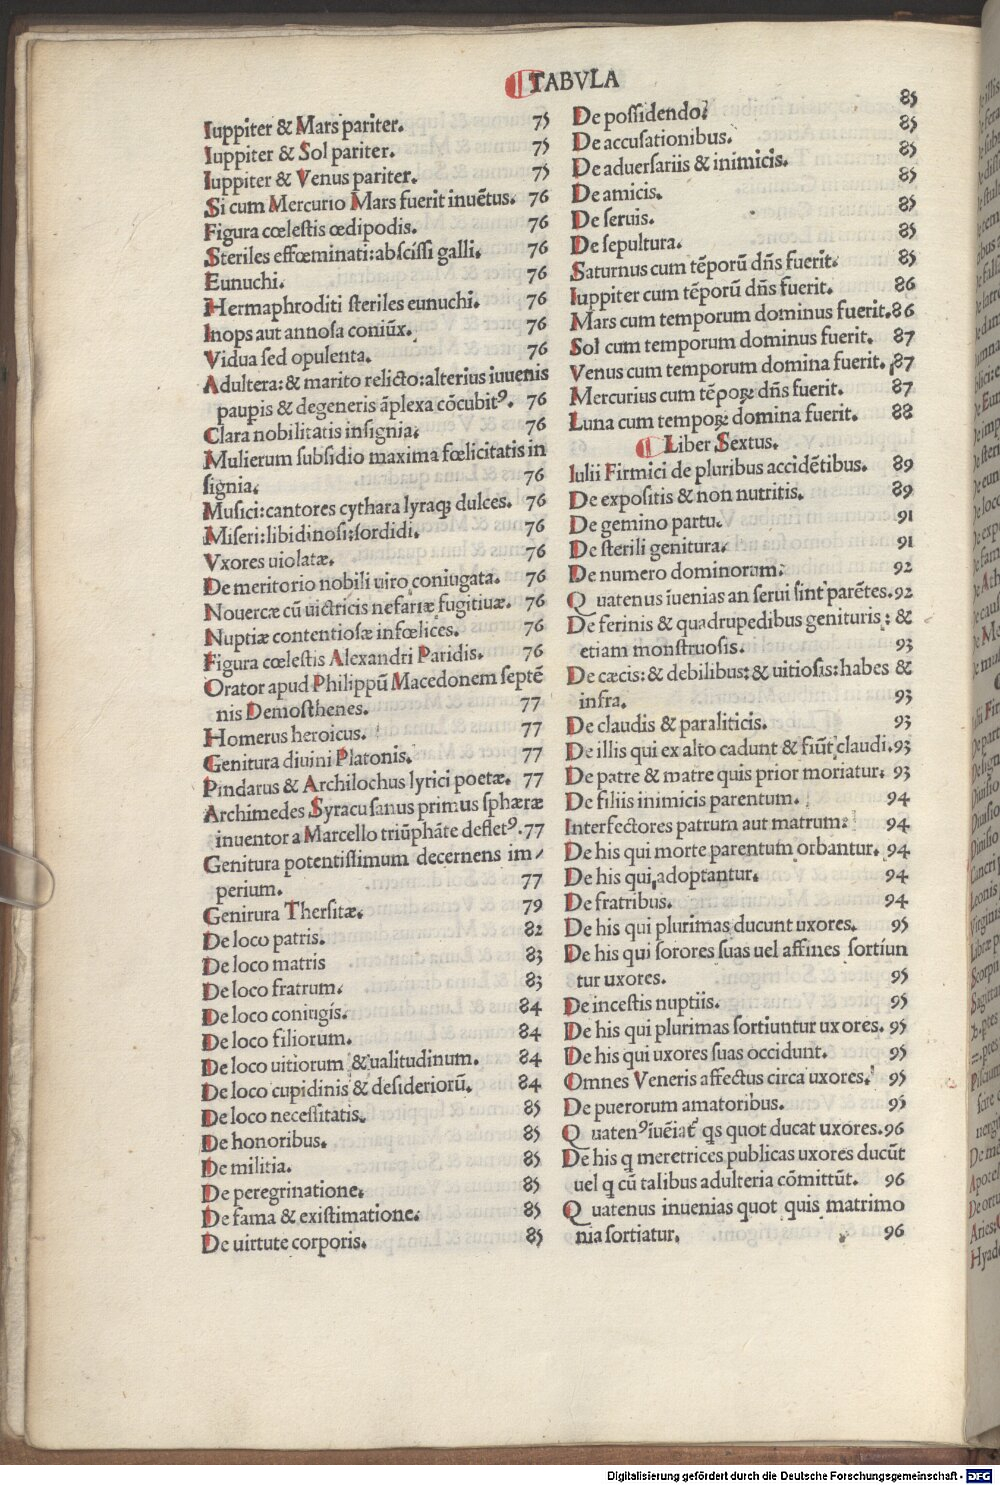 TABVLA
Iuppiter & Mars pariter. 75
Iuppiter & Sol pariter. 75
Iuppiter & Venus pariter. 75
Si cum Mercurio Mars fuerit inuẽtus. 76
Figura cœlestis œdipodis. 76
Steriles effœminati: abscissi galli. 76
Eunuchi. 76
Hermaphroditi steriles eunuchi. 76
Inops aut annosa coniũx. 76
Vidua sed opulenta. 76
Adultera: & marito relicto: alterius iuuenis
paupis & degeneris ãplexa cõcubitꝰ. 76
Clara nobilitatis insignia. 76
Mulierum subsidio maxima fœlicitatis in
signia. 76
Musici: cantores cythara lyraqꝫ dulces. 76
Miseri: libidinosi: sordidi. 76
Vxores uiolatæ. 76
De meritorio nobili uiro coniugata. 76
Nouercæ cũ uictricis nefariæ fugitiuæ. 76
Nuptiæ contentiosæ infœlices. 76
Figura cœlestis Alexandri Paridis. 76
Orator apud Philippũ Macedonem septẽ
nis Demosthenes. 77
Homerus heroicus. 77
Genitura diuini Platonis. 77
Pindarus & Archilochus lyrici poetæ. 77
Archimedes Syracusanus primus sphæræ
inuentor a Marcello triũphãte defletꝰ. 77
Genitura potentissimum decernens im/
perium. 77
Genirura Thersitæ. 79
De loco patris. 82
De loco matris 83
De loco fratrum. 83
De loco coniugis. 84
De loco filiorum. 84
De loco uitiorum & ualitudinum. 84
De loco cupidinis & desideriorũ. 84
De loco necessitatis. 85
De honoribus. 85
De militia. 85
De peregrinatione. 85
De fama & existimatione. 85
De uirtute corporis. 85
De possidendo. 85
De accusationibus. 85
De aduersariis & inimicis. 85
De amicis. 85
De seruis. 85
De sepultura. 85
Saturnus cum tẽporũ dñs fuerit. 85
Iuppiter cum tẽporũ dñs fuerit. 86
Mars cum temporum dominus fuerit. 86
Sol cum temporum dominus fuerit. 87
Venus cum temporum domina fuerit. 87
Mercurius cum tẽpoꝝ dñs fuerit. 87
Luna cum tempoꝝ domina fuerit. 88
Liber Sextus.
Iulii Firmici de pluribus accidẽtibus. 89
De expositis & non nutritis. 89
De gemino partu. 91
De sterili genitura. 91
De numero dominorum. 92
Quatenus ĩuenias an serui sint parẽtes. 92
De ferinis & quadrupedibus genituris: &
etiam monstruosis. 93
De cæcis: & debilibus: & uitiosis: habes &
infra. 93
De claudis & paraliticis. 93
De illis qui ex alto cadunt & fiũt claudi. 93
De patre & matre quis prior moriatur. 93
De filiis inimicis parentum. 94
Interfectores patrum aut matrum. 94
De his qui morte parentum orbantur. 94
De his qui adoptantur. 94
De fratribus. 94
De his qui plurimas ducunt uxores. 95
De his qui sorores suas uel affines sortiun
tur uxores. 95
De incestis nuptiis. 95
De his qui plurimas sortiuntur uxores. 95
De his qui uxores suas occidunt. 95
Omnes Veneris affectus circa uxores. 95
De puerorum amatoribus. 95
Quatenꝰ ĩuẽiat qs quot ducat uxores. 96
De his q meretrices publicas uxores ducũt
uel q cũ talibus adulteria cõmittũt. 96
Quatenus inuenias quot quis matrimo
nia sortiatur. 96
Digitalisierung gefördert durch die Deutsche Forschungsgemeinschaft - DFG